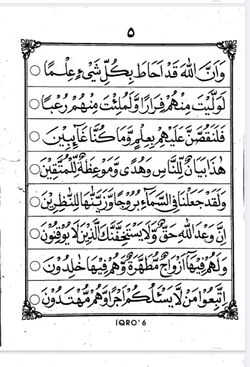 ٥
وَاَنَّ اللهَ قَدْ اَحَاطَ بِكُلِّ شَيْءٍ عِلْمًا
لَوَلَّيْتَ مِنْهُمْ فِرَارًا وَّلَمُلِئْتَ مِنْهُمْ رُعْبًا
فَلَنَقُصَّنَّ عَلَيْهِمْ بِعِلْمٍ وَّمَا كُنَّا غَآئِبِيْنَ
هٰذَا بَيَانٌ لِّلنَّاسِ وَهُدًى وَّمَوْعِظَةٌ لِّلْمُتَّقِيْنَ
وَلَقَدْ جَعَلْنَا فِى السَّمَآءِ بُرُوْجًا وَّزَيَّنّٰهَا لِلنّٰظِرِيْنَ
اِنَّ وَعْدَ اللهِ حَقٌّ وَّلَا يَسْتَخِفَّنَّكَ الَّذِيْنَ لَا يُوْقِنُوْنَ
وَلَهُمْ فِيْهَا اَزْوَاجٌ مُّطَهَّرَةٌ وَّهُمْ فِيْهَا خٰلِدُوْنَ
اِتَّبِعُوْا مَنْ لَّا يَسْئَلُكُمْ اَجْرًا وَّهُمْ مُّهْتَدُوْنَ
IQRO' 6